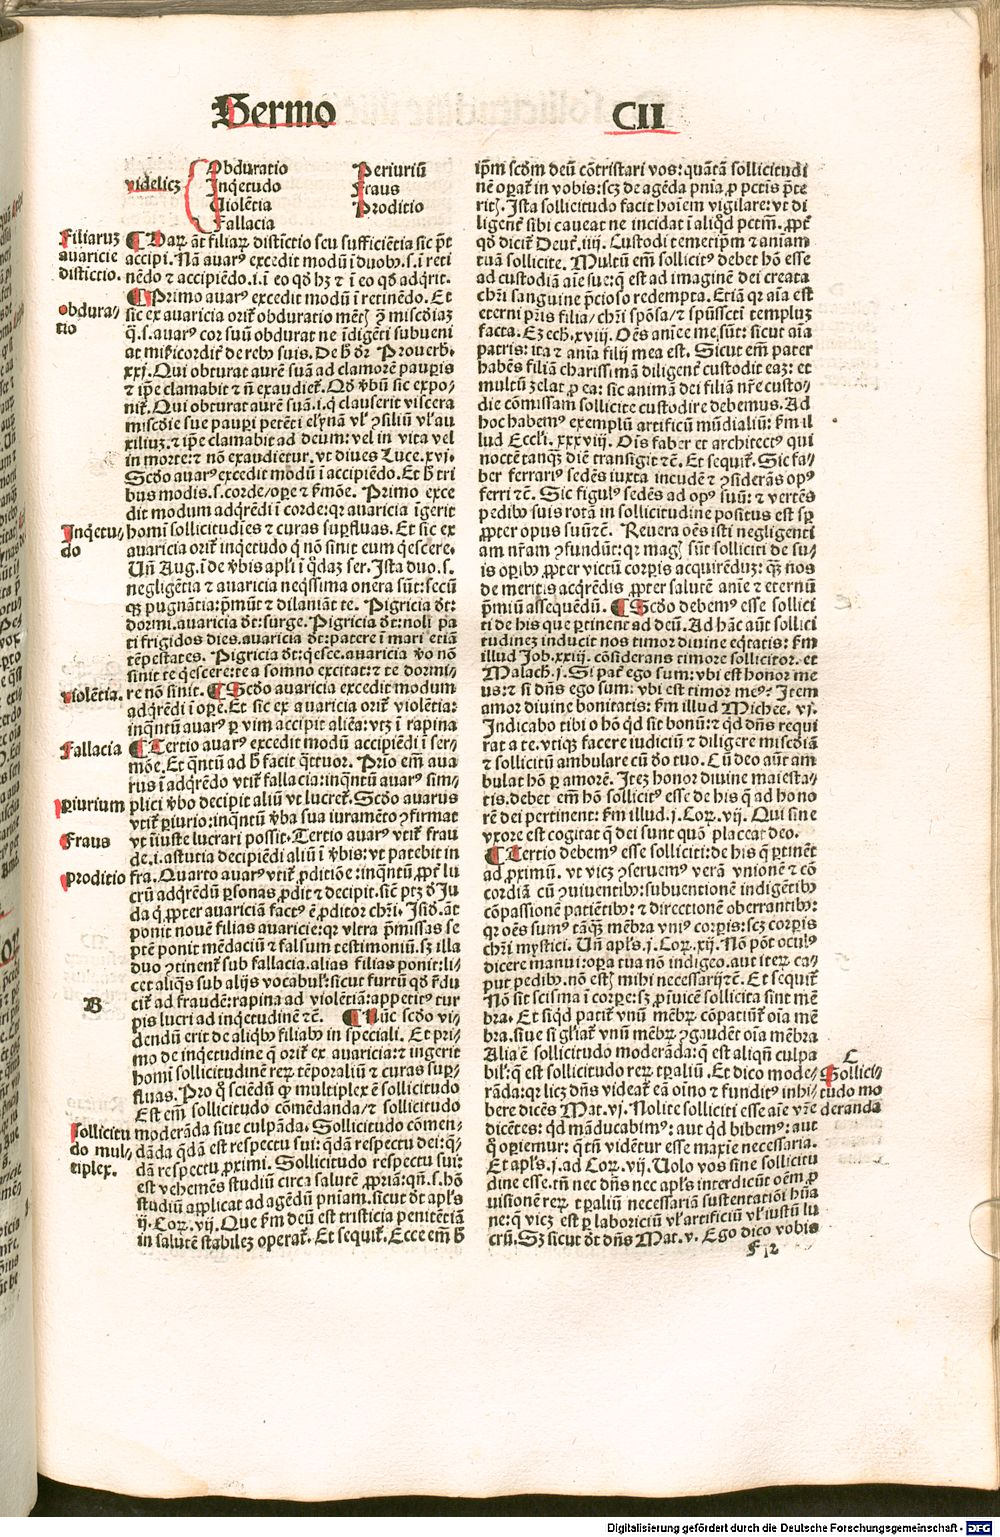 Sermo CII
videlicz
Obduratio
Inq̈etudo
Uiolētia
Fallacia
Periuriū
Fraus
Proditio
Filiaruz
auaricie
distictio.
¶ Haꝝ āt filiaꝝ distīctio seu sufficiētia sic p̄t
accipi. Nā auarꝰ excedit modū ī duobꝫ .s. ī reti
nēdo ⁊ accipiēdo .i. ī eo qḋ hꝫ ⁊ ī eo qḋ adq̄rit.
¶ Primo auarꝰ excedit modū ī retinēdo. Et
obdura⸗
tio
sic ex auaricia orit̄ obduratio mētꝯ ꝫ miscdiaꝫ
q̄ .s. auarꝰ cor suū obdurat ne īdigēti subueni
at misericordit̄ de rebꝰ suis. De h̄ dr̄ Prouerb.
xxj. Qui obturat aurē suā ad clamorē pauꝑis
⁊ ip̄e clamabit ⁊ nō exaudiet̄. Qḋ v̄bū sic expo⸗
nit̄. Qui obturat aurē suā .i. q̄ clauserit viscera
miscdie sue pauꝑi petēti elynā vl̓ ꝯsiliū vl̓ au
xiliuꝫ. ⁊ ip̄e clamabit ad deum: vel in vita vel
in morte: ⁊ nō exaudietur. vt diues Luce .xvj.
Scdo auarꝰ excedit modū ī accipiēdo. Et h̄ tri
bus modis .s. corde/ oꝑe ⁊ ẜmōe. Primo exce
dit modum adq̄rēdi ī corde: qꝛ auaricia īgerit
Inq̈etu⸗
do
homī sollicitudīes ⁊ curas suꝑfluas. Et sic ex
auaricia orit̄ inq̈etudo q̄ nō sinit eum q̈escere.
Uñ Aug. ī de v̄bis apl̓i ī q̄daꝫ ser. Ista duo .s.
negligētia ⁊ auaricia neq̈ssima onera sūt: secū
qꝫ pugnātia: p̄mūt ⁊ dilaniāt te. Pigricia ḋt:
dormi. auaricia ḋt: surge. Pigricia ḋt: noli pa
ti frigidos dies. auaricia ḋt: patere ī mari etiā
tēpestates. Pigricia ḋt: q̈esce. auaricia v̄o nō
sinit te q̈escere: te a somno excitat: ⁊ te dormi⸗
violētia.
re nō sinit. ¶ Scdo auaricia excedit modum
adq̄rēdi ī oꝑe. Et sic ex auaricia orit̄ violētia:
inq̄ntū auarꝰ ꝑ vim accipit aliēa: vtꝫ ī rapina
Fallacia
¶ Tertio auarꝰ excedit modū accipiēdi ī ser⸗
mōe. Et q̄ntū ad h̄ facit q̄ttuor. Prīo em̄ aua
rus ī adq̄rēdo vtit̄ fallacia: inq̄ntū auarꝰ sim⸗
ꝑiurium
plici v̄bo decipit aliū vt lucret̄. Scdo auarus
vtit̄ ꝑiurio: inq̄ntū v̄ba sua iuramēto ꝯfirmat
Fraus
vt iniuste lucrari possit. Tertio auarꝰ vtit̄ frau
de .i. astutia decipiēdi aliū ī v̄bis: vt patebit in
proditio
fra. Quarto auarꝰ vtit̄ ꝓditiōe: inq̄ntū ꝓpt̄ lu
crū adq̄rēdū ꝑsonas ꝓdit ⁊ decipit. siē ptꝫ d̓ Ju
da q̄ ꝓpter auariciā factꝰ ē ꝓditor chr̄i. Isid̓. āt
ponit nouē filias auaricie: qꝛ vltra p̄missas se
ptē ponit mēdaciū ⁊ falsum testimoniū. sꝫ illa
duo ꝯtinent̄ sub fallacia. alias filias ponit: li⸗
cet aliq̄s sub alijs vocabul̓: sicut furtū qḋ r̄du
B
cit̄ ad fraudē: rapina ad violētiā: appetitꝰ tur
pis lucri ad inq̈etudinē ⁊c̄. ¶ Nūc scdo vi⸗
dendū erit de aliqbꝰ filiabꝰ in speciali. Et pri⸗
mo de inq̈etudine q̄ orit̄ ex auaricia: ⁊ ingerit
homī sollicitudinē reꝝ tēporaliū ⁊ curas suꝑ⸗
fluas. Pro q̄ sciēdū ꝙ multiplex ē sollicitudo
Est em̄ sollicitudo cōmēdanda/ ⁊ sollicitudo
Sollicitu
do mul⸗
tiplex.
moderāda siue culpāda. Sollicitudo cōmen⸗
dāda q̄dā est respectu sui: q̄dā respectu dei: q̄⸗
dā respectu ꝓximi. Sollicitudo respectu sui:
est vehemēs studiū circa salutē ꝓpriā: qn̄ .s. hō
studiū applicat ad agēdū pn̄iam. sicut ḋt apl̓s
ij. Coꝝ. vij. Que ẜm deū est tristicia penitētiā
in salutē stabileꝫ operat̄. Et sequit̄. Ecce em̄ h̄
ip̄m scḋm deū cōtristari vos: quātā sollicitudi
nē oꝑat̄ in vobis: scꝫ de agēda pn̄ia ꝓ pctīs p̄te
ritꝯ. Ista sollicitudo facit hoīem vigilare: vt di
ligent̄ sibi caueat ne incidat ī aliq̇d pctm̄. ꝓpt̄
qḋ dicit̄ Deut̄. iiij. Custodi temetip̄m ⁊ aniam
tuā sollicite. Multū em̄ sollicitꝰ debet hō esse
ad custodiā aīe sue: q̄ est ad imaginē dei creata
chr̄i sanguine p̄cioso redempta. Etiā qꝛ aīa est
eterni pris filia/ chr̄i spōsa/ ⁊ spūsscti templuꝫ
facta. Ezech. xviij. Oēs anīe mee sūt: sicut aīa
patris: ita ⁊ anīa filij mea est. Sicut em̄ pater
habēs filiā charissimā diligent̄ custodit eaꝫ: et
multū zelat̄ ꝓ ea: sic animā dei filiā nr̄e custo⸗
die cōmissam sollicite custodire debemus. Ad
hoc habemꝰ exemplū artificū mūdialiū: ẜm il
lud Eccl̓i. xxxviij. Oīs faber et architectꝰ qui
noctē tanq̄ꝫ diē transigit ⁊c̄. Et sequit̄. Sic fa⸗
ber ferrariꝰ sedēs iuxta incudē ⁊ ꝯsiderās opꝰ
ferri ⁊c̄. Sic figulꝰ sedēs ad opꝰ suū: ⁊ vertēs
pedibꝰ suis rotā in sollicitudine positus est sꝑ
ꝓpter opus suū ⁊c̄. Reuera oēs isti negligenti
am nr̄am ꝯfundūt: qꝛ magꝯ sūt solliciti de su⸗
is oꝑibꝰ ꝓpter victū corꝑis acquirēduꝫ: q̄ꝫ nos
de meritis acq̄rēdis ꝓpter salutē anīe ⁊ eternū
p̄miū assequēdū. ¶ Scdo debemꝰ esse sollici
ti de his que ꝑtinent ad deū. Ad hāc aūt sollici
tudineꝫ inducit nos timor diuine eq̄tatis: ẜm
illud Job. xxiij. cōsiderans timore sollicitor. et
Malach. j. Si pat̄ ego sum: vbi est honor me
us: ⁊ si dn̄s ego sum: vbi est timor meꝰ? Item
amor diuine bonitatis: ẜm illud Michee. vj.
Indicabo tibi o hō qḋ sit bonū: ⁊ qḋ dn̄s requi
rat a te. vtiqꝫ facere iudiciū ⁊ diligere miscdiā
⁊ sollicitū ambulare cū d̓o tuo. Cū deo aūt am
bulat hō ꝑ amorē. Iteꝫ honor diuine maiesta⸗
tis. debet em̄ hō sollicitꝰ esse de his q̄ ad hono
rē dei pertinent: ẜm illud .j. Coꝝ. vij. Qui sine
vxore est cogitat q̄ dei sunt quō placeat deo.
¶ Tertio debemꝰ esse solliciti: de his q̄ ꝑtinēt
ad ꝓximū. vt vicꝫ ꝯseruemꝰ verā vnionē ⁊ cō
cordiā cū ꝯuiuentibꝰ: subuentionē indigētibꝰ
cōpassionē patiētibꝰ: ⁊ directionē oberrantibꝰ:
qꝛ oēs sumꝰ tāq̄ꝫ mēbra vniꝰ corꝑis: scꝫ corꝑis
chr̄i mystici. Uñ apl̓s .j. Coꝝ. xij. Nō pōt oculꝰ
dicere manui: oꝑa tua nō indigeo. aut iteꝝ ca⸗
put pedibꝰ. nō estꝯ mihi necessarij ⁊c̄. Et sequit̄
Nō sit scisma ī corꝑe: sꝫ ꝓ īuicē sollicita sint mē
bra. Et siq̇d patit̄ vnū mēbꝝ cōpatiūt̄ oīa mē
bra. siue si gl̓iat̄ vnū mēbꝝ ꝯgaudēt oīa mēbra
C
Sollici⸗
tudo mo
deranda
Alia ē sollicitudo moderāda: q̄ est aliqn̄ culpa
bil̓: q̄ est sollicitudo reꝝ tꝑaliū. Et dico mode⸗
rāda: qꝛ licꝫ dn̄s videat̄ eā oīno ⁊ funditꝰ inhi⸗
bere dicēs Mat. vj. Nolite solliciti esse aīe vr̄e
dicētes: qḋ māducabimꝰ: aut qḋ bibemꝰ: aut
q̊ oꝑiemur: q̄ tn̄ vidētur esse maxīe necessaria.
Et apl̓s .j. ad Coꝝ. vij. Uolo vos sine sollicitu
dine esse. tn̄ nec dn̄s nec apl̓s interdicūt oēm ꝓ
uisionē reꝝ tꝑaliū necessariā sustentatiōi hūa
ne: q̄ vicꝫ est ꝑ laboriciū vl̓ artificiū vl̓ iustū lu
crū. Sꝫ sicut ḋt dn̄s Mat. v. Ego dico vobis
F 2
Digitalisierung gefördert durch die Deutsche Forschungsgemeinschaft - DFG